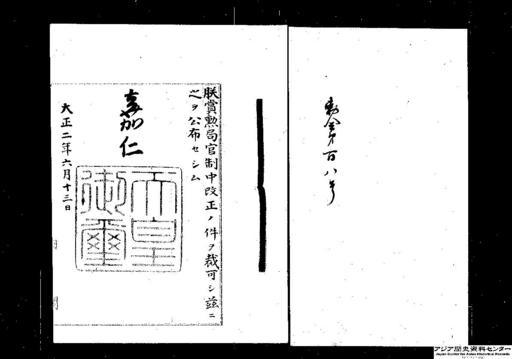 勅令第百八号
朕賞勲局官制中改正ノ件ヲ裁可シ茲ニ
之ヲ公布セシム
嘉仁
天皇御璽
大正二年六月十三日
アジア歴史資料センター
Japan Center for Asian Historical Records